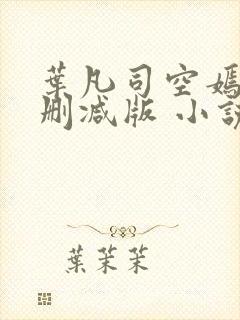 葉凡司空嫣
删减版 小說
葉茉茉